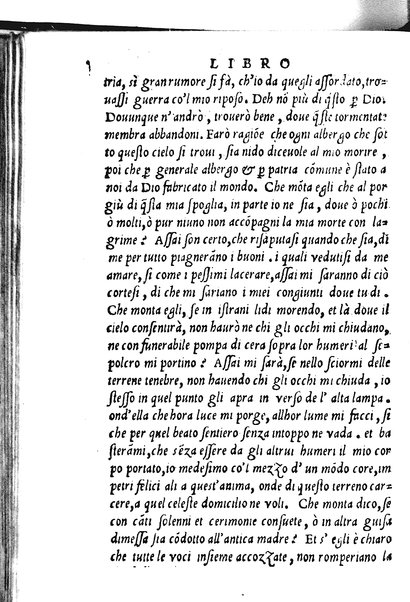 LIBRO
tria, sì gran rumore si fà, ch'io da quegli assordato, tro-
uassi guerra co'l mio riposo. Deh nõ più di q̃sto p̱ Dio.
Douunque n'andrò, trouerò bene, doue q̃ste tormentate
membra abbandoni. Farò ragiõe che ogni albergo che sot
to questo cielo si troui, sia nido diceuole al mio morire,
poi che p̱ generale albergo & p̱ patria cõmune è stato a
noi da Dio fabricato il mondo. Che mõta egli che al por
giù di q̃sta mia spoglia, in parte io ne sia, doue ò pochi
ò molti, ò pur niuno non accõpagni la mia morte con la-
grime? Assai son certo, che risaputasi quando che sia, di
me per tutto piagnerãno i buoni. i quali vedutisi da me
amare, si come i pessimi lacerare, assai mi saranno di ciò
cortesi, di che mi sariano i miei congiunti doue tu di.
Che monta egli, se in istrani lidi morendo, et là doue il
cielo consentirà, non haurò ne chi gli occhi mi chiudano,
ne con funerabile pompa di cera sopra lor humeri al se-
polcro mi portino? Assai mi sarà, se nello sciormi delle
terrene tenebre, non hauendo chi gli occhi mi chiuda, io
stesso in quel punto gli apra in verso de l'alta lampa.
ond'ella che hora luce mi porge, allhor lume mi facci, si
che per quel beato sentiero senza intoppo ne vada. et ba
sterãmi, che sẽza essere da gli altrui humeri il mio cor
po portato, io medesimo co'l mezzo d'un mõdo core, im
petri felici ali a quest'anima, onde di questo terreno car-
cere, a quel celeste domicilio ne voli. Che monta dico, se
con cãti solenni et cerimonie consuete, ò in altra guisa
dimessa sia cõdotto all'antica madre? Et s'egli è chiaro
che tutte le voci insieme accozzate, non romperiano la